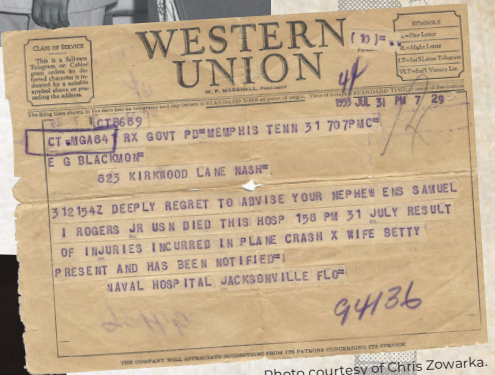 CLASS OF SERVICE
This is a full-rate
Telegram or Cable-
gram unless its de-
ferred character is in-
dicated by a suitable
symbol above or pre-
ceding the address.
WESTERN
UNION
W. P. MARSHALL, PRESIDENT
(10)=
SYMBOLS
DL=Day Letter
NL=Night Letter
LT=Int'l Letter Telegram
VLT=Int'l Victory Ltr.
The filing time shown in the date line on telegrams and day letters is STANDARD TIME at point of origin. Time of receipt is STANDARD TIME at point of destination
44
1953 JUL 31 PM 7 29
CTB689
CT.MGA841 RX GOVT PD=MEMPHIS TENN 31 707PMC=
E G BLACKMON=
823 KIRKWOOD LANE NASH=
312154Z DEEPLY REGRET TO ADVISE YOUR NEPHEW ENS SAMUEL
I ROGERS JR USN DIED THIS HOSP 158 PM 31 JULY RESULT
OF INJURIES INCURRED IN PLANE CRASH X WIFE BETTY
PRESENT AND HAS BEEN NOTIFIED=
NAVAL HOSPITAL JACKSONVILLE FLO=
94136
THE COMPANY WILL APPRECIATE SUGGESTIONS FROM ITS PATRONS CONCERNING ITS SERVICE
Photo courtesy of Chris Zowarka.